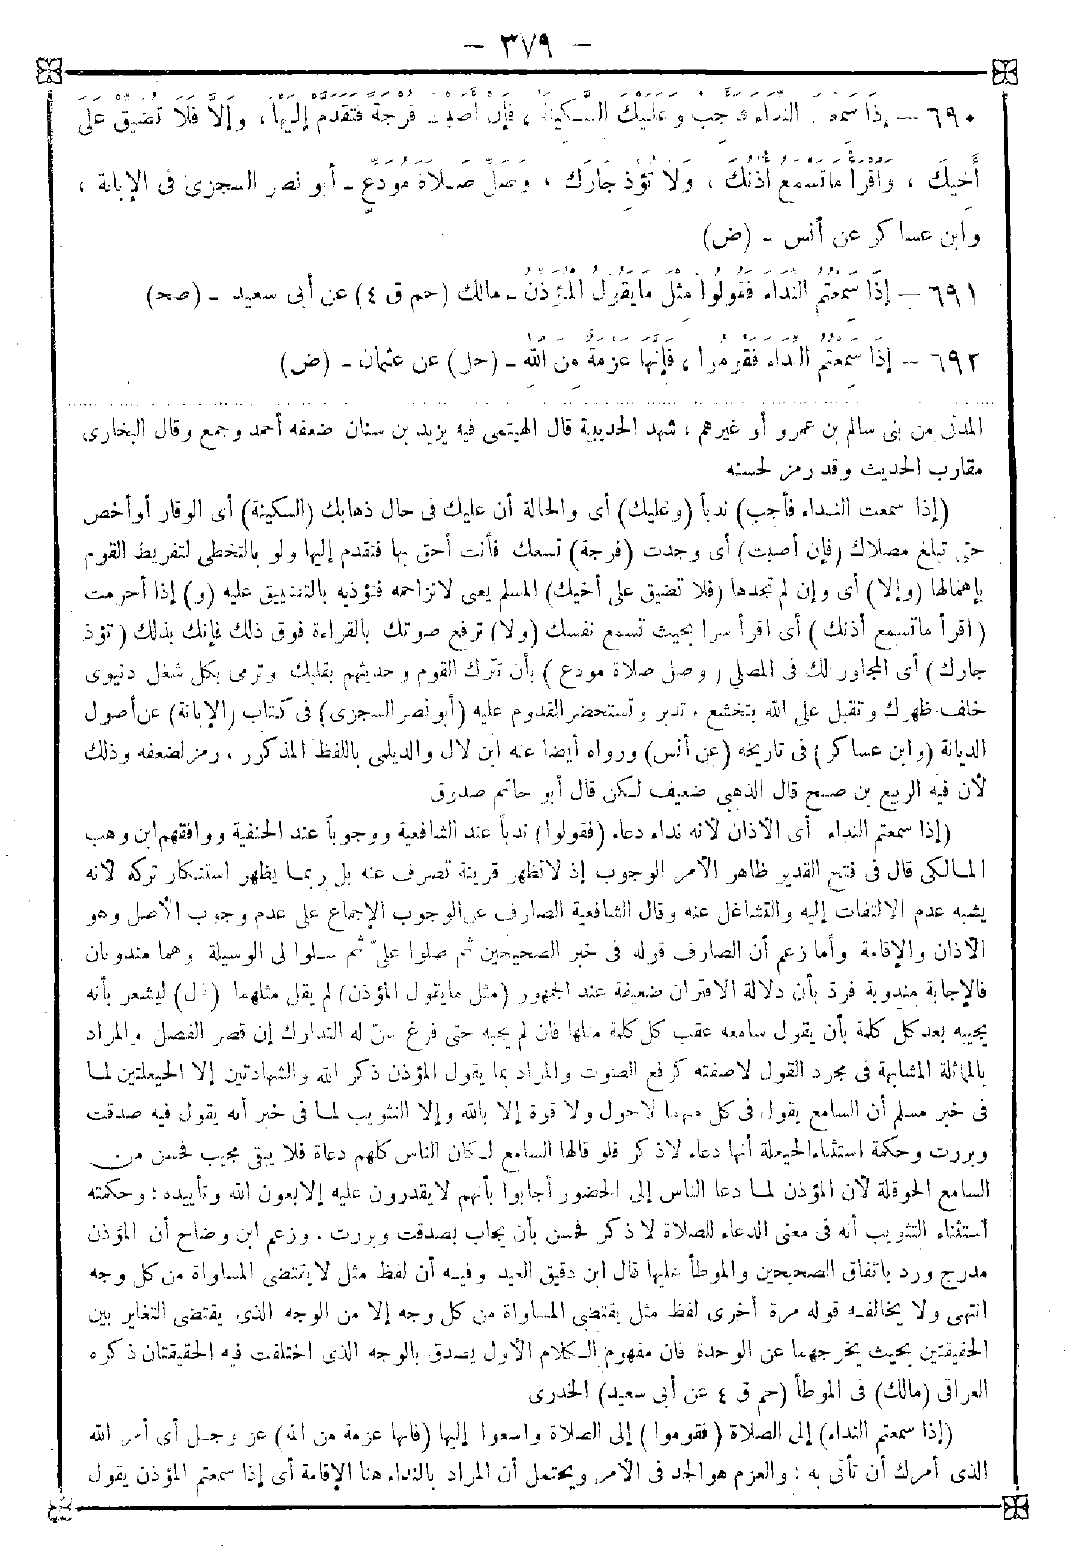 - ٣٧٩ -
٦٩٠ - إذا سمعت النداء فأجب وعليك السكينة، فإن أصبت فرجة فتقدم إليها، وإلا فلا تضيق على
أخيك، واقرأ ما تسمع أذنك، ولا تؤذ جارك، وصل صلاة مودع - أبو نصر السجزى فى الإبانة،
وابن عساكر عن أنس - (ض)
٦٩١ - إذا سمعتم النداء فقولوا مثل ما يقول المؤذن - مالك (حم ق ٤) عن أبى سعيد - (صح)
٦٩٢ - إذا سمعتم النداء فقوموا، فإنها عزمة من الله - (حل) عن عثمان - (ض)
المدنى من بنى سالم بن عمرو أو غيرهم، شهد الحديبية قال الهيتمى فيه يزيد بن سنان ضعفه أحمد وجمع وقال البخارى
مقارب الحديث وقد رمز لحسنه
(إذا سمعت النداء فأجب) ندباً (وعليك) أى والحالة أن عليك فى حال ذهابك (السكينة) أى الوقار أو أخص
حتى تبلغ مصلاك (فإن أصبت) أى وجدت (فرجة) تسعك فأنت أحق بها فتقدم إليها ولو بالتخطى لتفريط القوم
بإهمالها (وإلا) أى وإن لم تجدها (فلا تضيق على أخيك) المسلم يعنى لا تزاحمه فتؤذيه بالتضييق عليه (و) إذا أحرمت
(اقرأ ما تسمع أذنك) أى اقرأ سرا بحيث تسمع نفسك (ولا) ترفع صوتك بالقراءة فوق ذلك فإنك بذلك (تؤذ
جارك) أى المجاور لك فى المصلى (وصل صلاة مودع) بأن تترك القوم وحديثهم بقلبك وترمى بكل شغل دنيوى
خلف ظهرك وتقبل على الله بتخشع، تدبر وتستحضر القدوم عليه (أبو نصر السجزى) فى كتاب (الإبانة) عن أصول
الديانة (وابن عساكر) فى تاريخه (عن أنس) ورواه أيضا عنه ابن لال والديلمى باللفظ المذكور، رمز لضعفه وذلك
لأن فيه الربيع بن صبيح قال الذهبى ضعيف لكن قال أبو حاتم صدوق
(إذا سمعتم النداء أى الأذان لأنه نداء دعاء (فقولوا) ندباً عند الشافعية ووجوباً عند الحنفية ووافقهم ابن وهب
المالكى قال فى فتح القدير ظاهر الأمر الوجوب إذ لا تظهر قرينة تصرف عنه بل ربما يظهر استنكار تركه لأنه
يشبه عدم الالتفات إليه والتشاغل عنه وقال الشافعية الصارف عن الوجوب الإجماع على عدم وجوب الأصل وهو
الأذان والإقامة وأما زعم أن الصارف قوله فى خبر الصحيحين ثم صلوا علىّ ثم سلوا لى الوسيلة وهما مندوبان
فالإجابة مندوبة فردّ بأن دلالة الاقتران ضعيفة عند الجمهور (مثل ما يقول المؤذن) لم يقل مثلهما (قال) ليشعر بأنه
يجيبه بعد كل كلمة بأن يقول سامعه عقب كل كلمة مثلها فان لم يجبه حتى فرغ سنّ له التدارك إن قصر الفصل والمراد
بالمماثلة المشابهة فى مجرد القول لاصفته كرفع الصوت والمراد بما يقول المؤذن ذكر الله والشهادتين إلا الحيعلتين لما
فى خبر مسلم أن السامع يقول فى كل منهما لا حول ولا قوة إلا بالله وإلا التثويب لما فى خبر أنه يقول فيه صدقت
وبررت وحكمة استثناء الحيعلة أنها دعاء لا ذكر فلو قالها السامع لكان الناس كلهم دعاة فلا يبقى مجيب فحسن من
السامع الحوقلة لأن المؤذن لما دعا الناس إلى الحضور أجابوا بأنهم لا يقدرون عليه إلا بعون الله وتأييده: وحكمته
استثناء التثويب أنه فى معنى الدعاء للصلاة لا ذكر فحسن بأن يجاب بصدقت وبررت. وزعم ابن وضاح أن المؤذن
مدرج ورد باتفاق الصحيحين والموطأ عليها قال ابن دقيق العيد وفيه أن لفظ مثل لا يقتضى المساواة من كل وجه
انتهى ولا يخالفه قوله مرة أخرى لفظ مثل يقتضى المساواة من كل وجه إلا من الوجه الذى يقتضى التغاير بين
الحقيقتين بحيث يخرجهما عن الوحدة فان مفهوم الكلام الأول يصدق بالوجه الذى اختلفت فيه الحقيقتان ذكره
العراقى (مالك) فى الموطأ (حم ق ٤ عن أبى سعيد) الخدرى
(إذا سمعتم النداء) إلى الصلاة (فقوموا) إلى الصلاة واسعوا إليها (فانها عزمة من الله) عز وجل أى أمر الله
الذى أمرك أن تأتى به: والعزم هو الجد فى الأمر ويحتمل أن المراد بالنداء هنا الإقامة أى إذا سمعتم المؤذن يقول